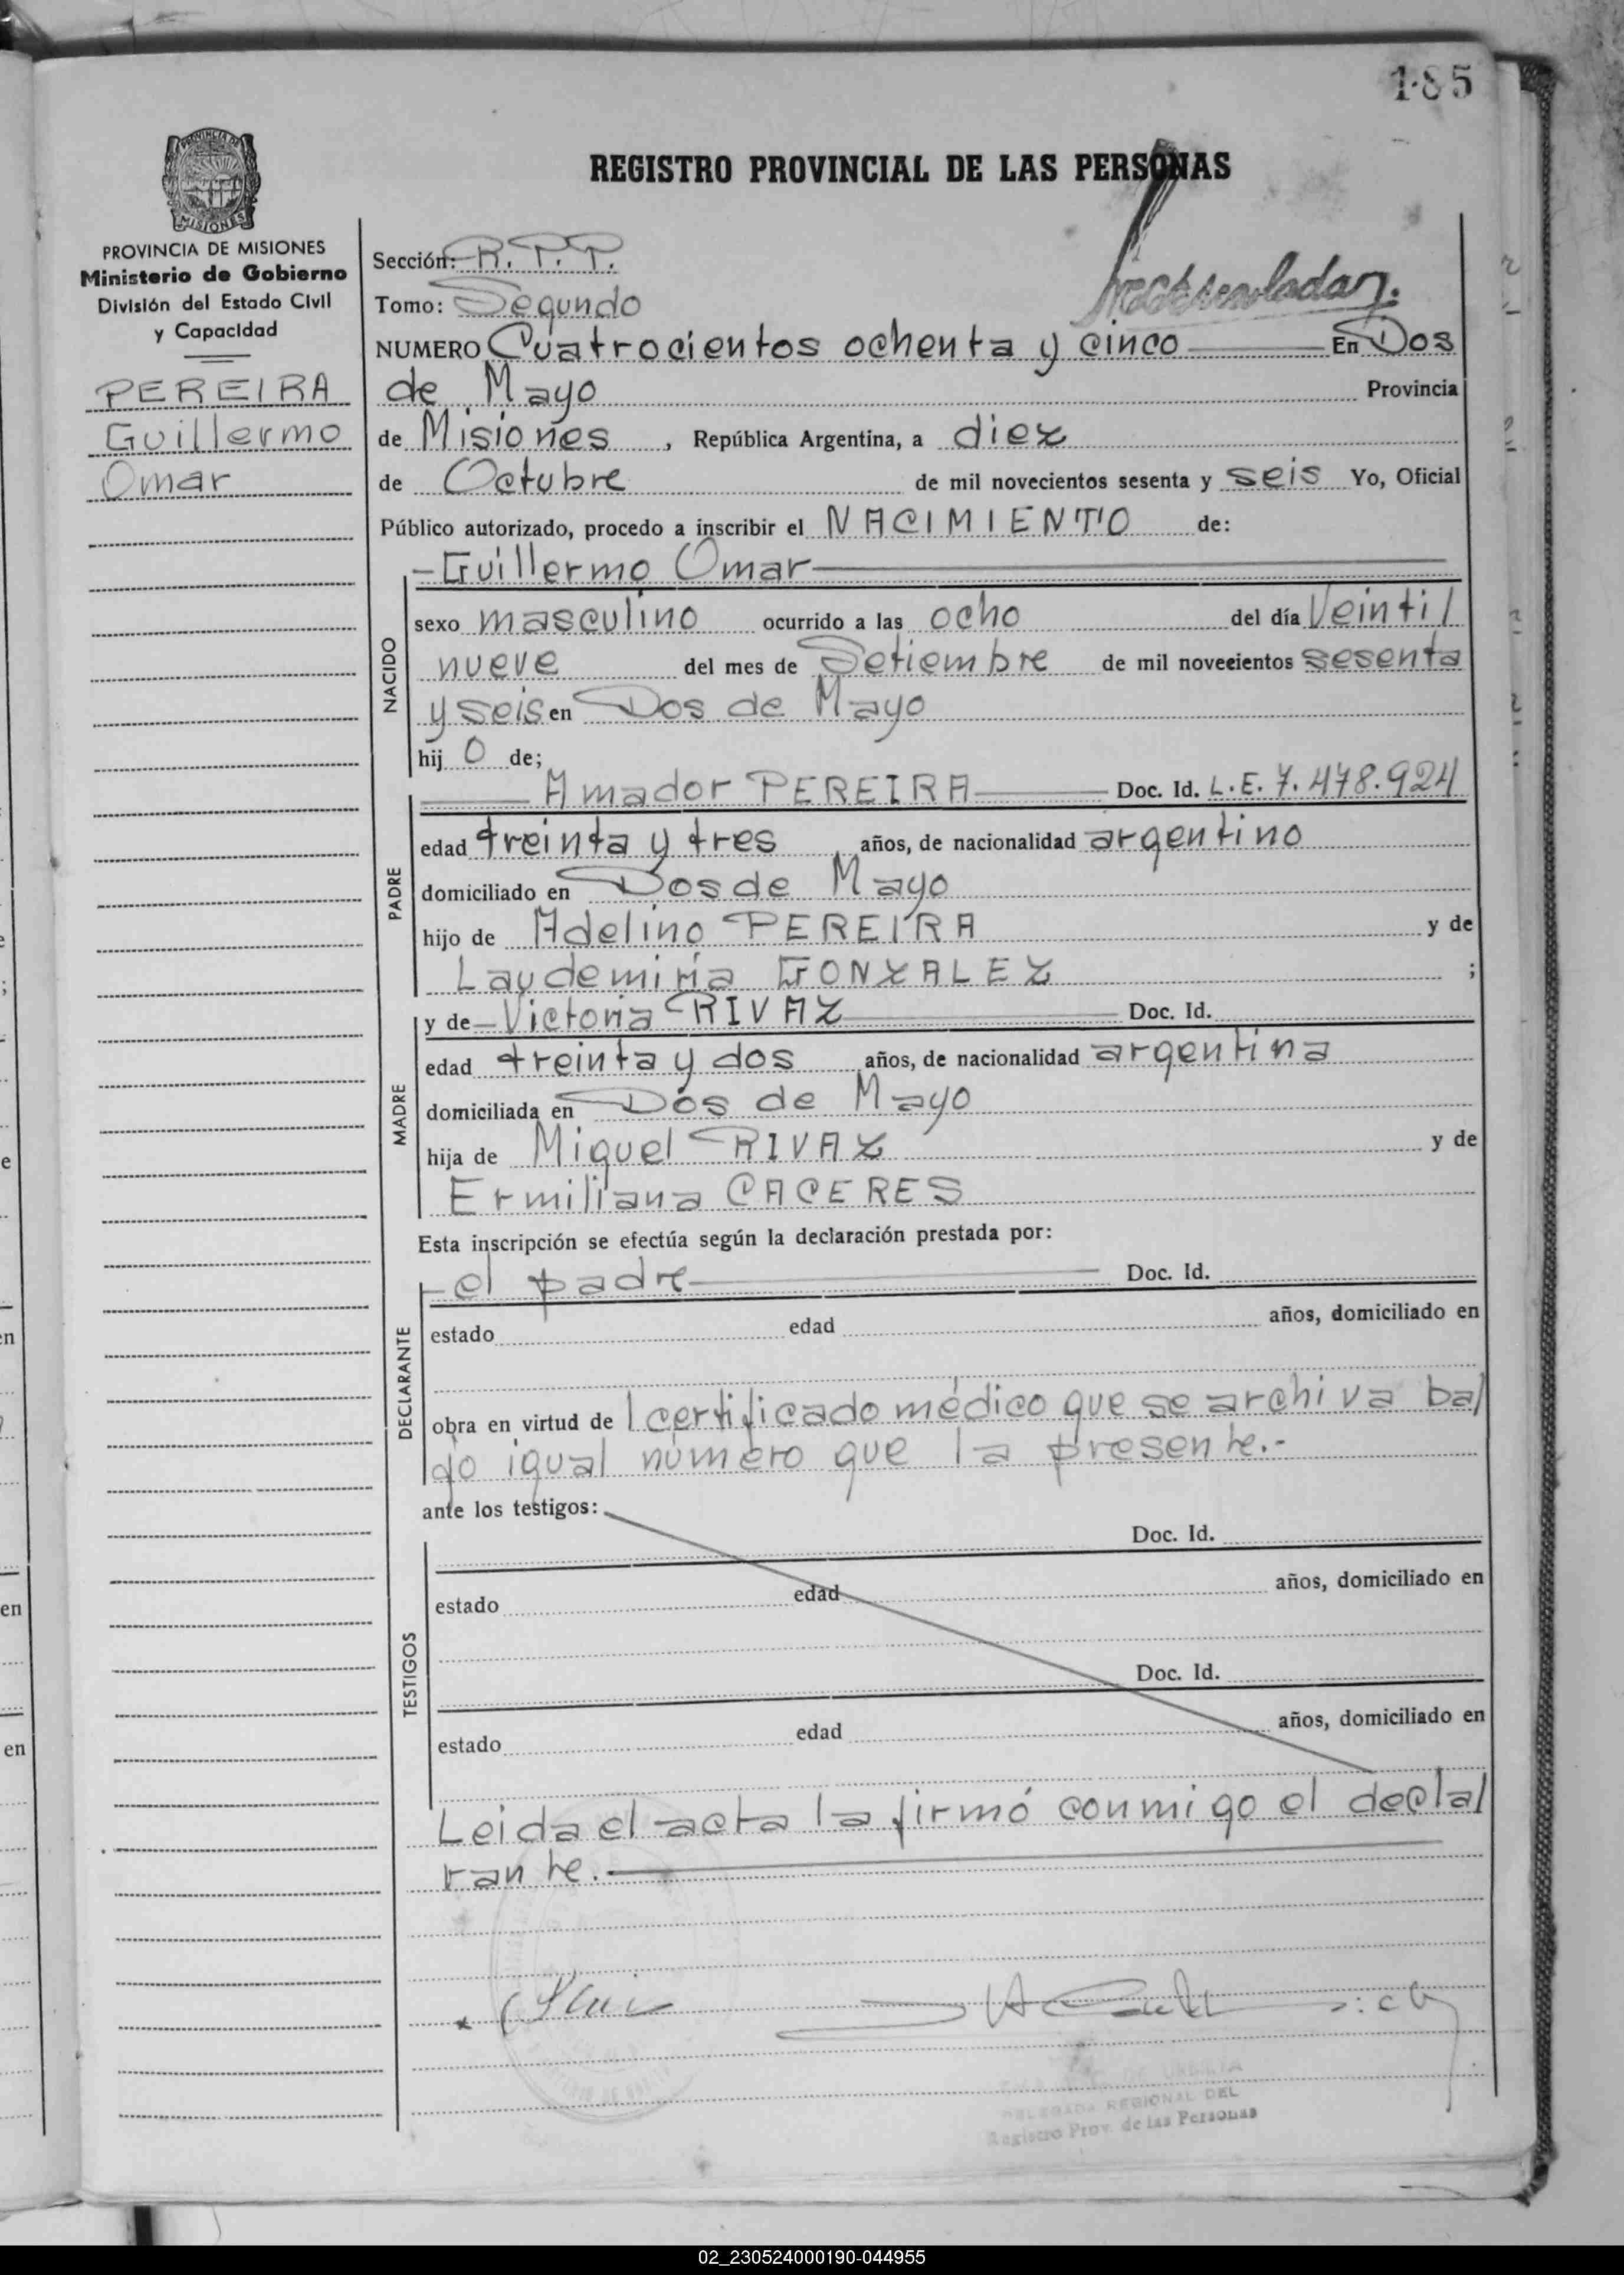 185
REGISTRO PROVINCIAL DE LAS PERSONAS
PROVINCIA DE MISIONES
Ministerio de Gobierno
División del Estado Civil
y Capacidad
PEREIRA
Guillermo
Omar
Sección: R.P.P.
Tomo: Segundo
NUMERO Cuatrocientos ochenta y cinco En Dos
de Mayo Provincia
de Misiones, República Argentina, a diez
de Octubre de mil novecientos sesenta y seis Yo, Oficial
Público autorizado, procedo a inscribir el NACIMIENTO de:
NACIDO
- Guillermo Omar
sexo masculino ocurrido a las ocho del día Veinti/
nueve del mes de Setiembre de mil novecientos sesenta
y seis en Dos de Mayo
hij o de;
PADRE
Amador PEREIRA Doc. Id. L.E. 7.478.924
edad treinta y tres años, de nacionalidad argentino
domiciliado en Dos de Mayo
hijo de Adelino PEREIRA y de
Laudemiria GONZALEZ ;
MADRE
y de Victoria RIVAZ Doc. Id.
edad treinta y dos años, de nacionalidad argentina
domiciliada en Dos de Mayo
hija de Miguel RIVAZ y de
Ermiliana CACERES
Esta inscripción se efectúa según la declaración prestada por:
DECLARANTE
- el padre Doc. Id.
estado edad años, domiciliado en
obra en virtud de l certificado médico que se archiva ba/
jo igual número que la presente.-
ante los testigos:
TESTIGOS
Doc. Id.
estado edad años, domiciliado en
Doc. Id.
estado edad años, domiciliado en
Leida el acta la firmó conmigo el decla/
rante.
DELEGADA REGIONAL DEL
Registro Prov. de las Personas
02_230524000190-044955